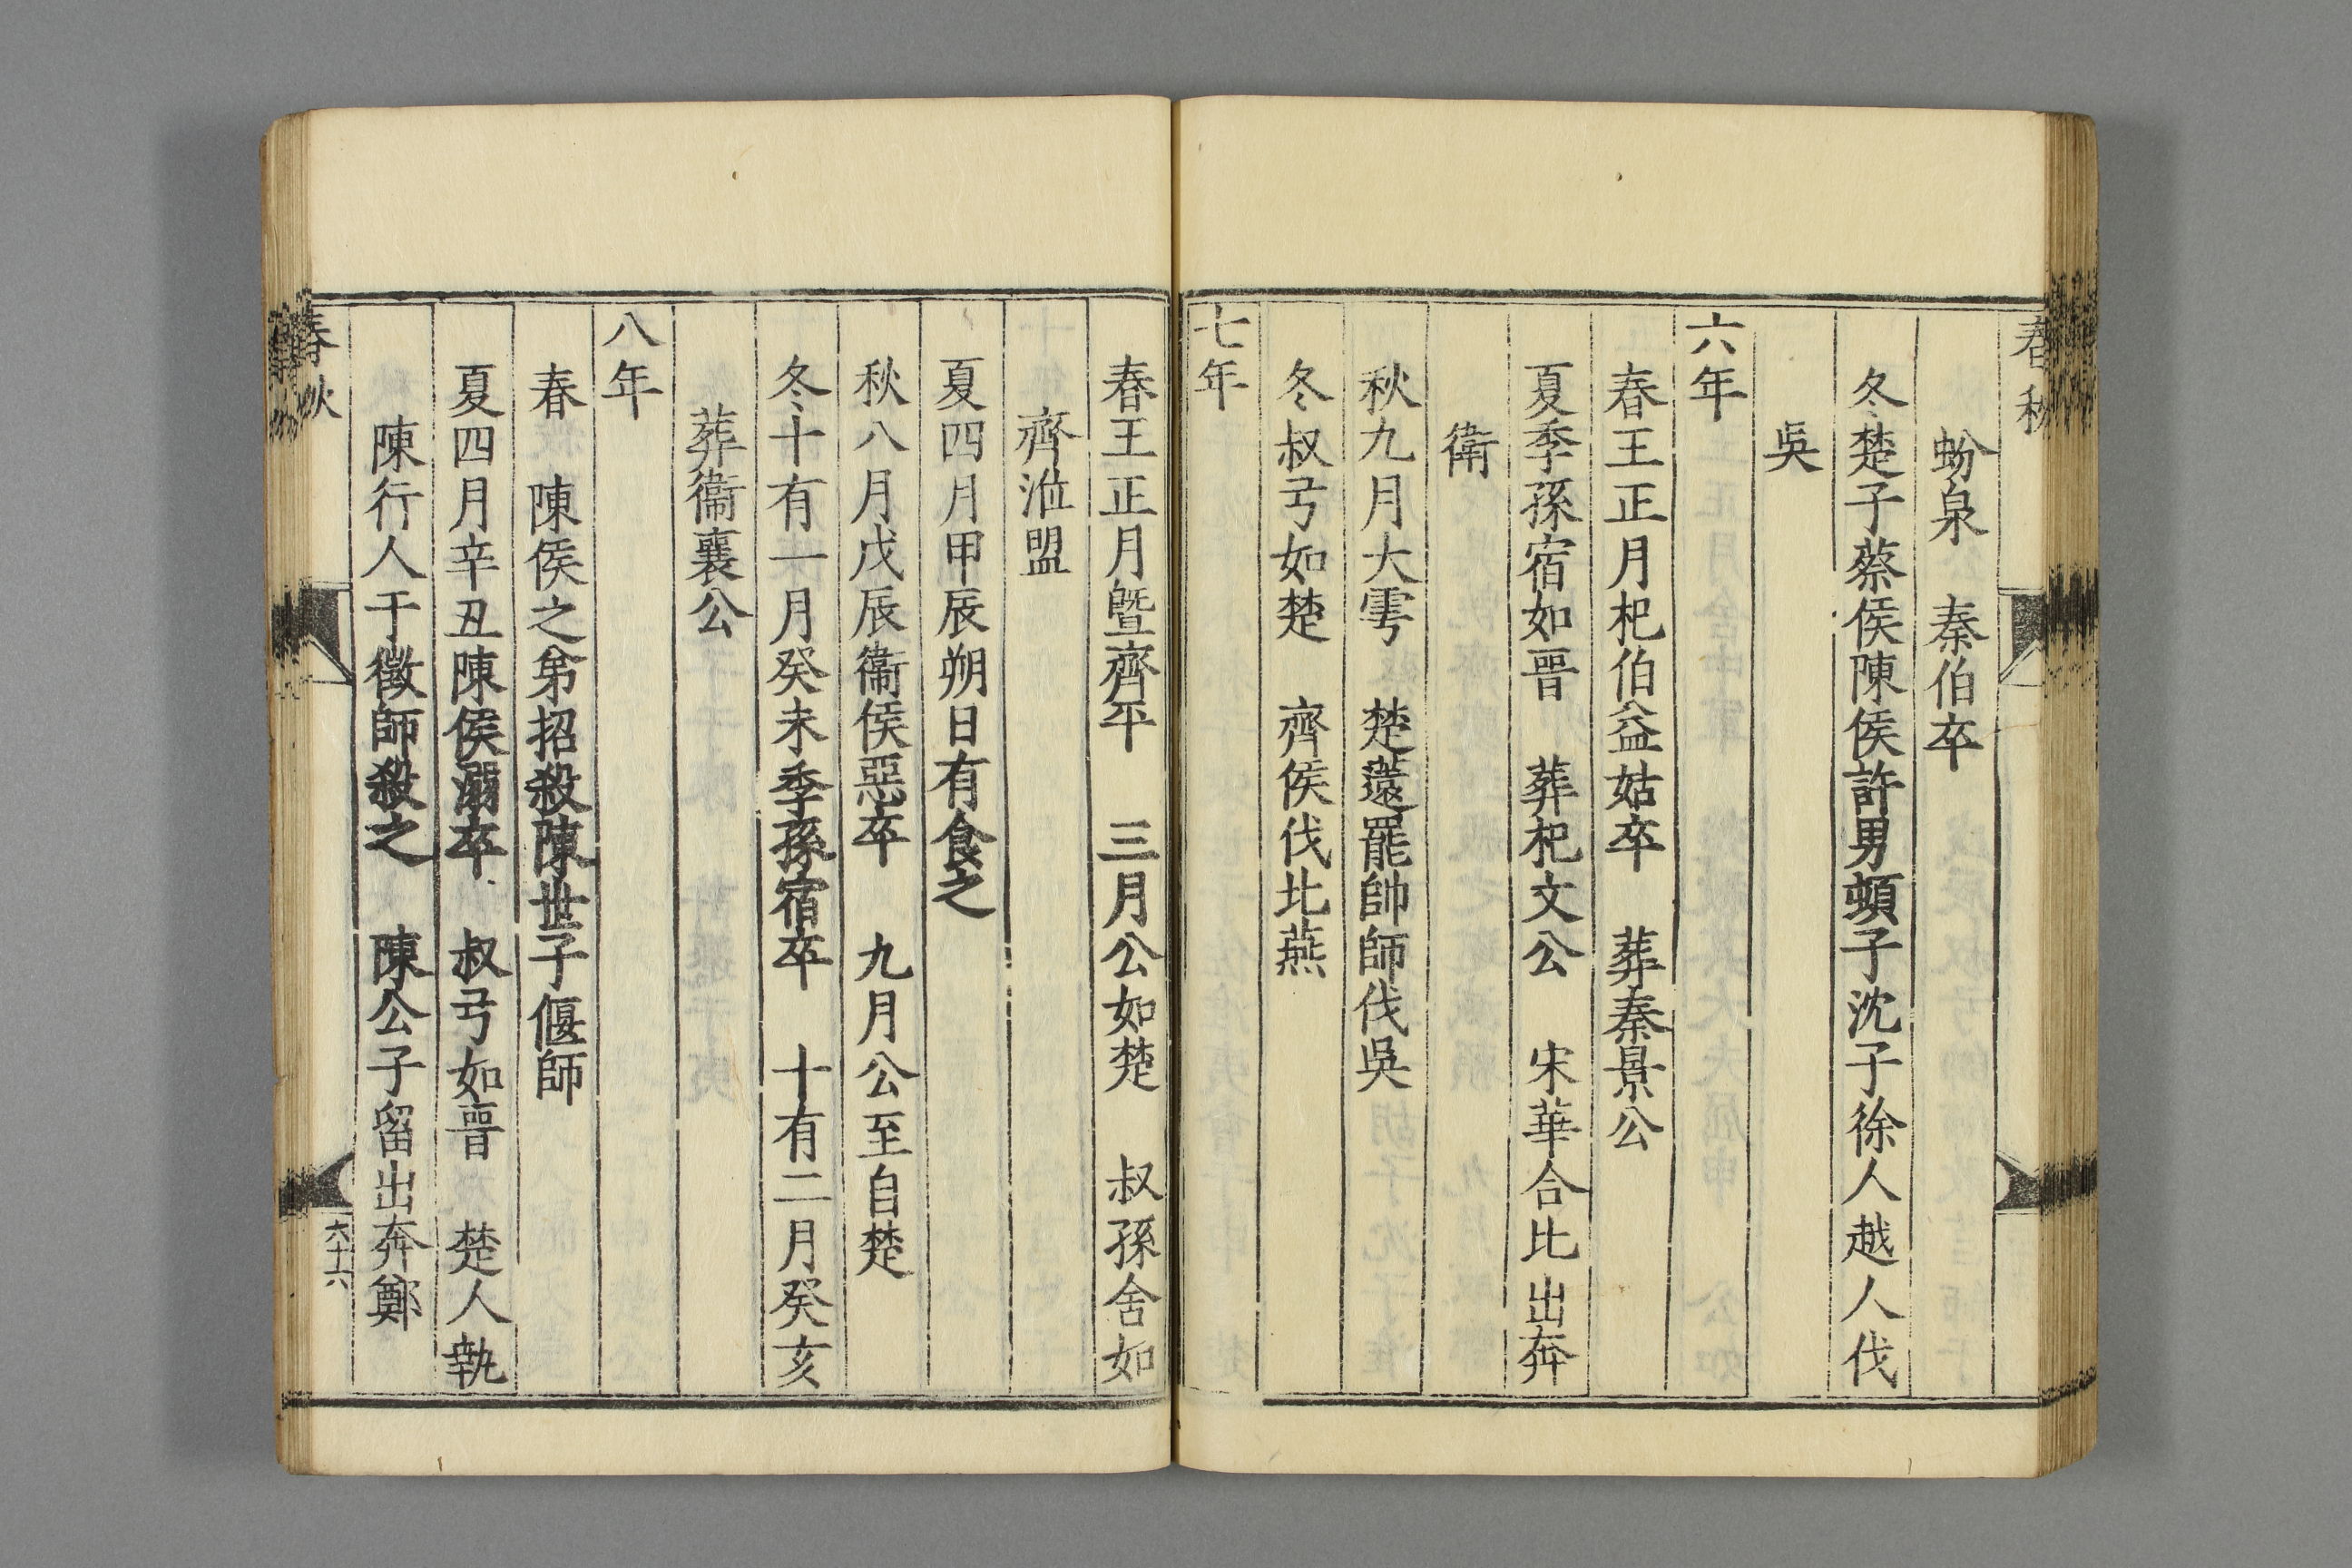 春秋
蚡泉　秦伯卒
冬楚子蔡侯陳侯許男頓子沈子徐人越人伐
吳
六年
春王正月杞伯益姑卒　葬秦景公
夏季孫宿如晉　葬杞文公　宋華合比出奔
衛
秋九月大雩　楚薳罷帥師伐吳
冬叔弓如楚　齊侯伐北燕
七年
春王正月曁齊平　三月公如楚　叔孫舍如
齊涖盟
夏四月甲辰朔日有食之
秋八月戊辰衞侯惡卒　九月公至自楚
冬十有一月癸未季孫宿卒　十有二月癸亥
葬衞襄公
八年
春　陳侯之弟招殺陳世子偃師
夏四月辛丑陳侯溺卒　叔弓如晉　楚人執
陳行人干徵師殺之　陳公子留出奔鄭
春秋
六十六